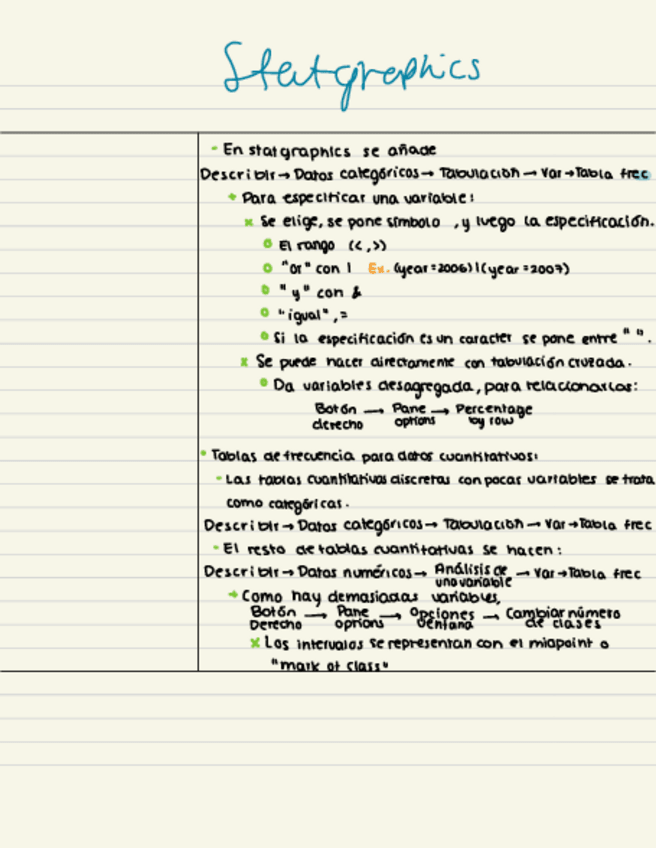 Statgraphics
- En statgraphics se añade
Describir → Datos categóricos → Tabulación → Var → Tabla frec
Para especificar una variable:
x Se elige, se pone símbolo , y luego la especificación.
El rango (<,>)
"or" con | Ex. (year=2006)|(year=2007)
"y" con &
"igual", =
Si la especificación es un caracter se pone entre " ".
x Se puede hacer directamente con tabulación cruzada.
Da variables desagregada, para relacionarlas:
Botón derecho → Pane options → Percentage by row
• Tablas de frecuencia para datos cuantitativos:
- Las tablas cuantitativas discretas con pocas variables se trata
como categóricas.
Describir → Datos categóricos → Tabulación → Var → Tabla frec
- El resto de tablas cuantitativas se hacen:
Describir → Datos numéricos → Análisis de una variable → Var → Tabla frec
Como hay demasiadas variables,
Botón Derecho → Pane options → Opciones ventana → Cambiar número de clases
x Los intervalos se representan con el midpoint o
"mark of class"